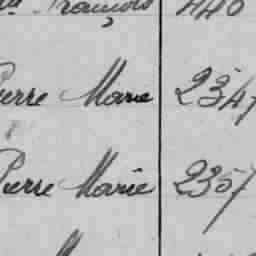 François 440
Pierre Marie 2347
Pierre Marie 2357